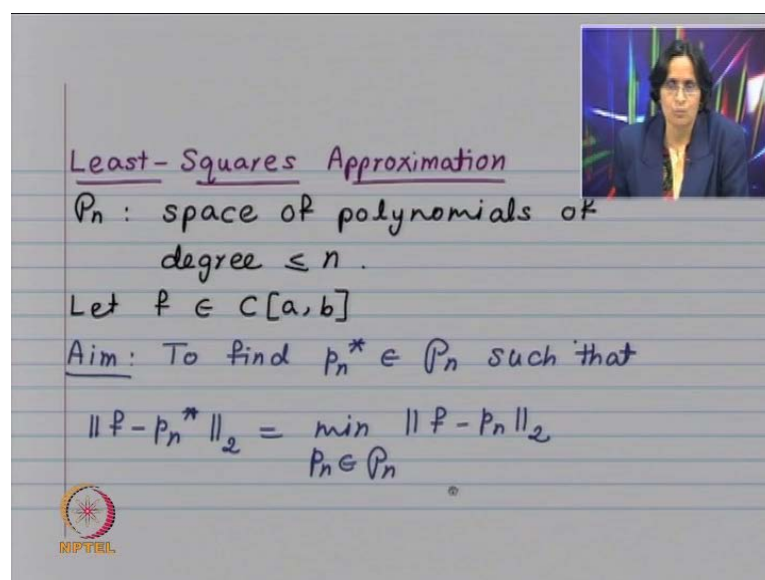 Least-Squares Approximation
𝒫n : space of polynomials of
degree ≤ n .
Let f ∈ C[a,b]
Aim: To find pn* ∈ 𝒫n such that
‖f - pn*‖₂ = min ‖f - pn‖₂
pn ∈ 𝒫n
NPTEL